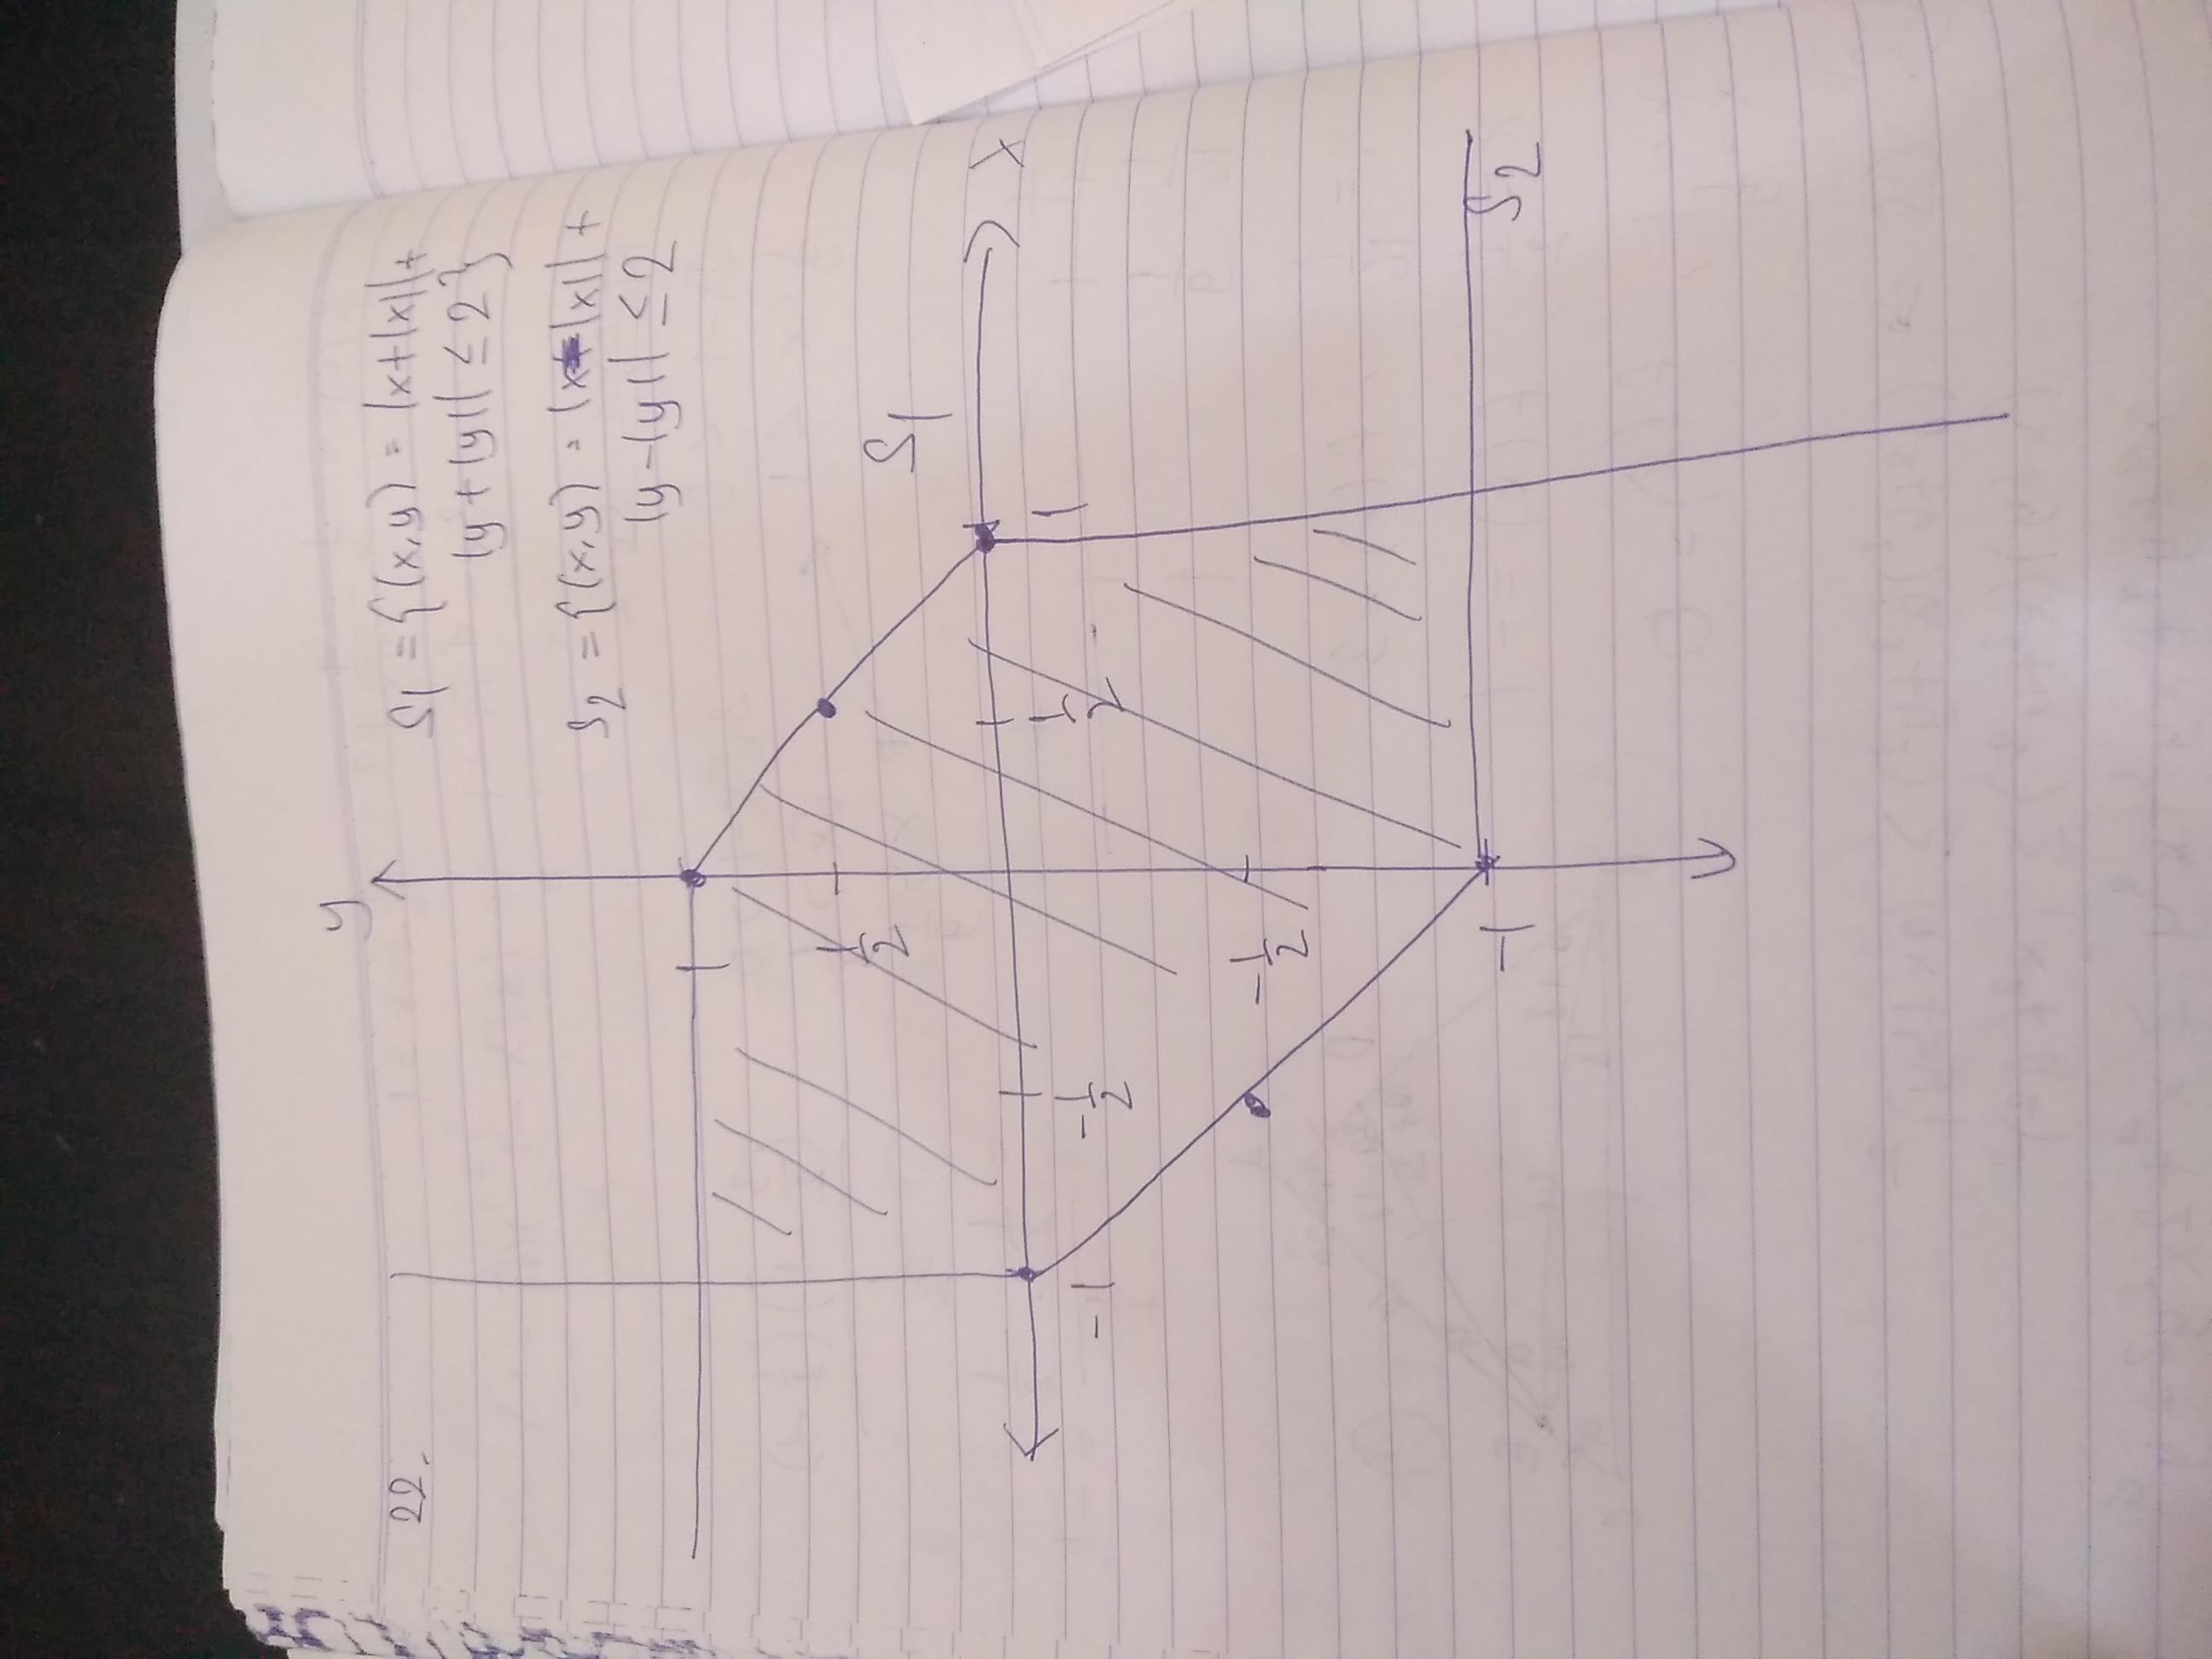 22.
y
S1 = {(x,y) : |x+|x||+
|y+|y|| ≤ 2}
S2 = {(x,y) : |x-|x|| +
|y-|y|| ≤ 2
1
1/2
S1
x
-1
-1/2
1/2
1
-1/2
-1
S2